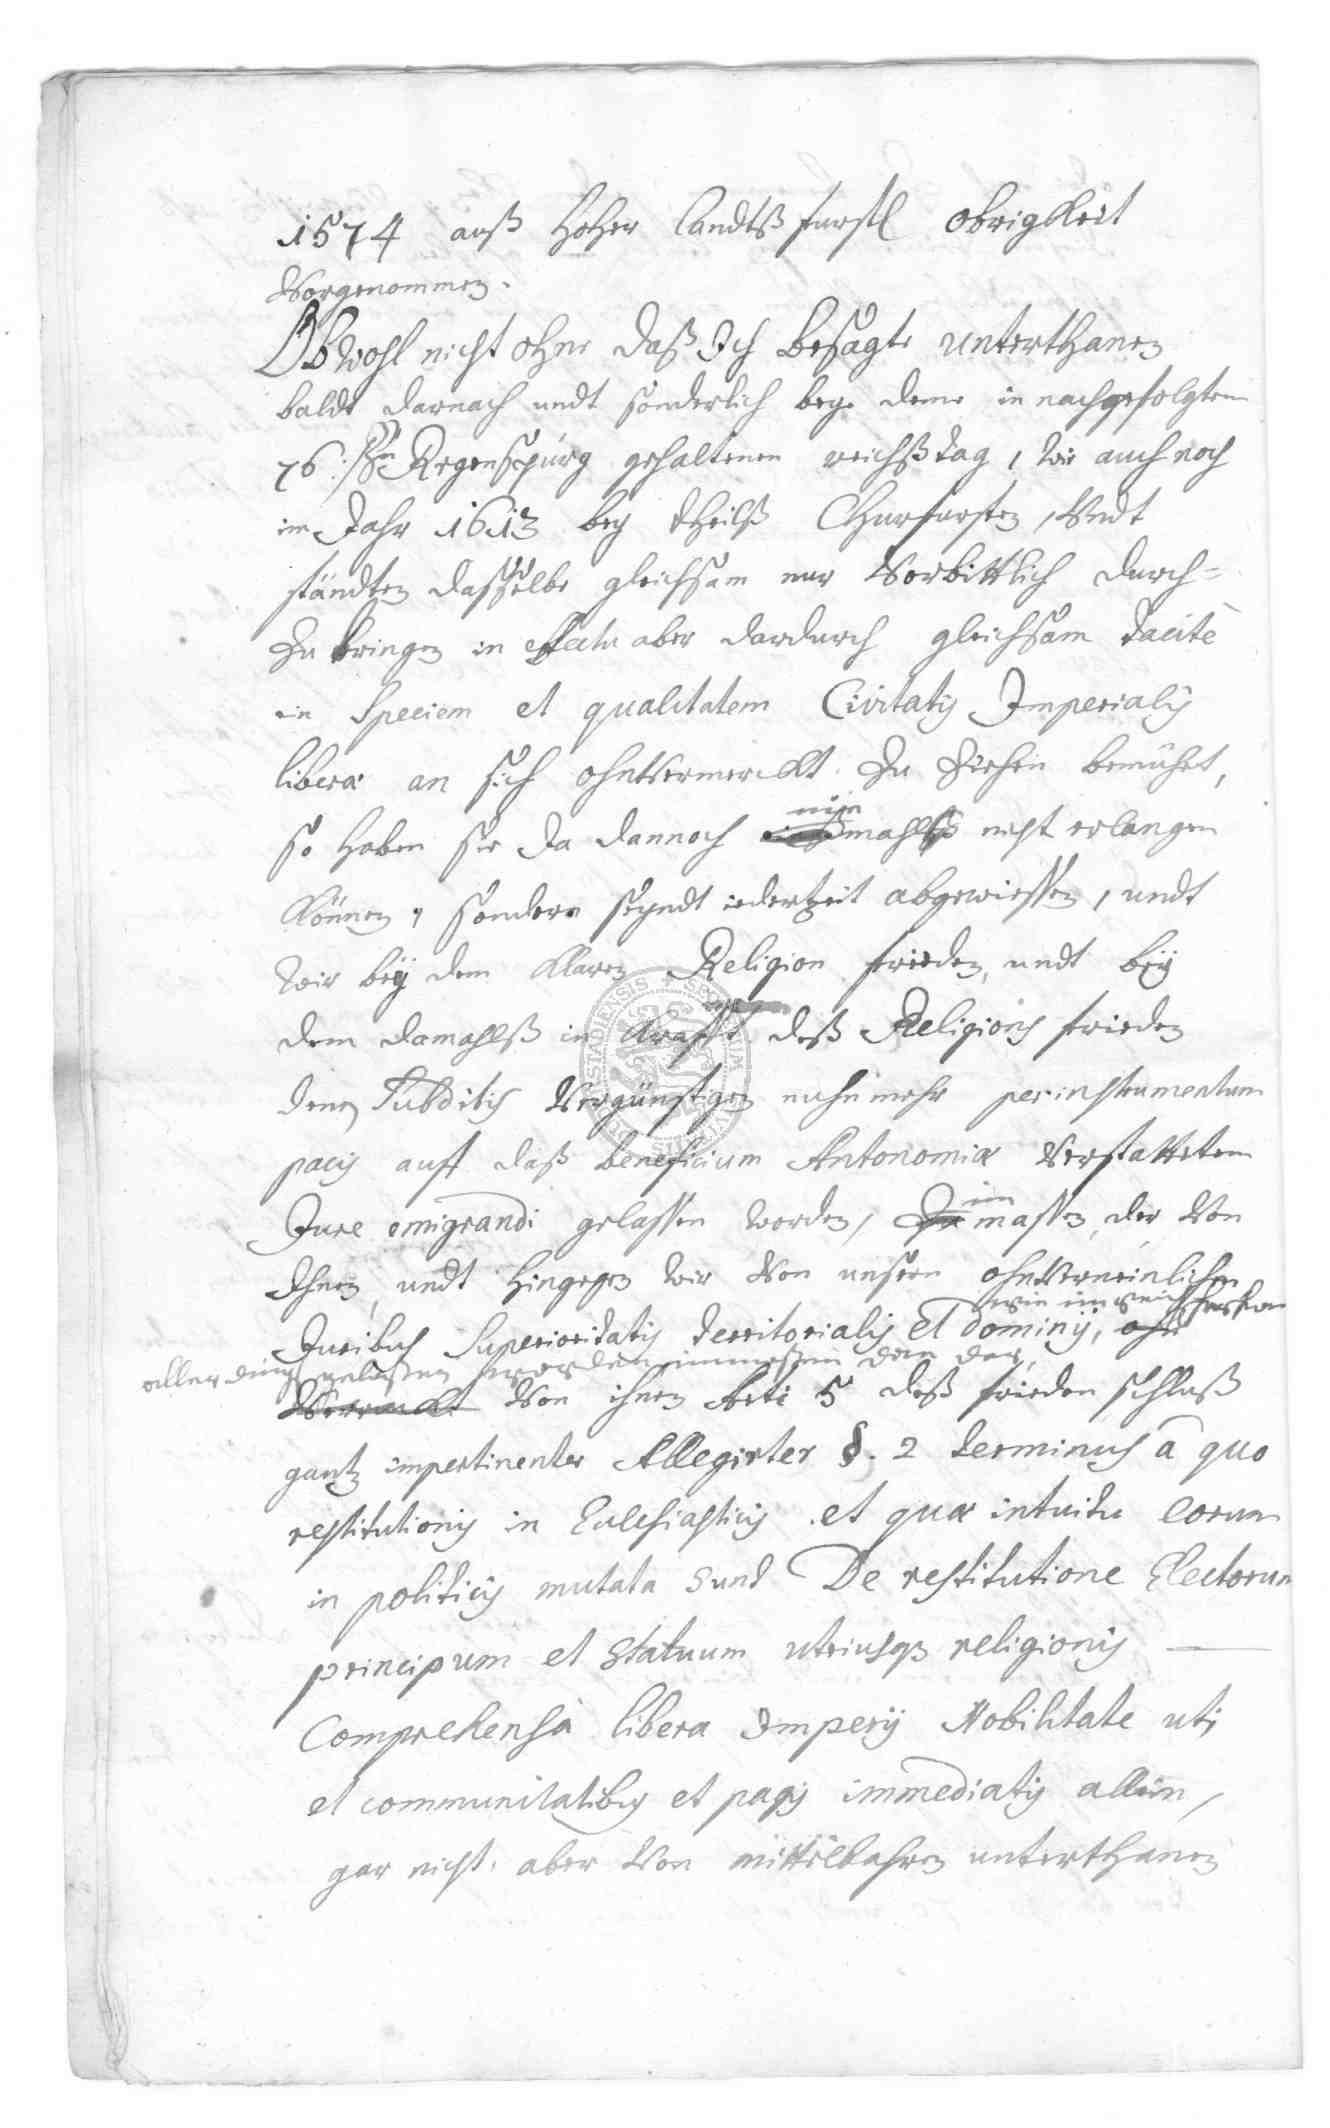 1574 auß hoher landtß fürstl obrigkeit
Vorgenommen.
Obwohl nicht ohne daß Ich besagte unterthanen
baldt darnach undt sonderlich bey deme in nachgefolgten
76. Zu Regenspurg gehaltenen reichßtag, wie auch noch
im Jahr 1613 bey theilß Churfursten, Undt
ständten dasselbe gleichsam nur Vorbittlich durch=
Zu bringen in effectu aber dardurch gleichsam tacitè
in speciem et qualitatem Civitatis Imperialis
liberæ an sich ohnvermerckt Zu Ziehen bemühet,
nie
so haben sie Da dannoch mahlß nicht erlangen
können, sondern seyndt iederzeit abgewiessen, undt
wir bey dem klaren Religion frieden, undt bey
dem damahlß in krafft deß Religions frieden
denen Subditis Vergünstigen nuhnmehr per instrumentum
pacis auff daß beneficium Autonomiæ verstatteten
im
Jure emigrandi gelassen worden, massen, der Von
Ihnen, undt hingegen wir Von unseren ohnverneinlichen
wie im
Juribus Superioritatis territorialis et dominij, ohn
allerdings gelassen worden immassen dan der
Verruckt Von ihnen Arti 5 deß frieden schluß
gantz impertinenter Allegirter §. 2 terminus à quo
restitutionis in Ecclesiasticis et quæ intuitu eorum
in politicis mutata sunt De restitutione Electorum
principum et Statuum utriusq3 religionis —
Comprehensa libera Imperij Nobilitate uti
et communitatibus et pagis immediatis allein,
gar nicht aber Von mittelbahren unterthanen